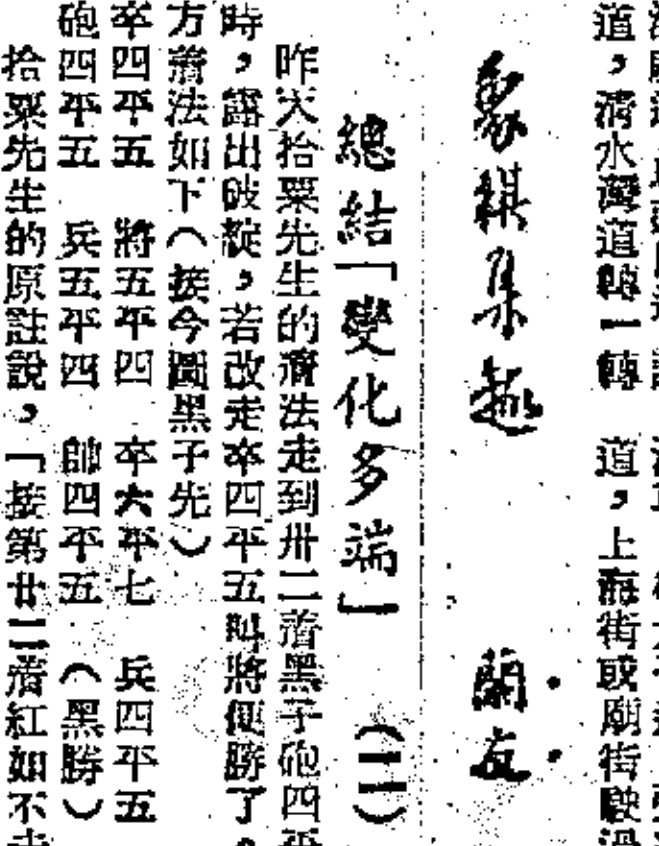 道，清水灣道轉一轉　道，上海街或廟街駛過
象棋集趣　蘭友
總結「變化多端」（二）
昨天拾粟先生的着法走到卅二着黑子砲四平
時，露出破綻，若改走卒四平五叫將便勝了。
方着法如下（接今圖黑子先）
卒四平五　將五平四　卒六平七　兵四平五
砲四平五　兵五平四　帥四平五　（黑勝）
拾粟先生的原註說，「接第廿二着紅如不走